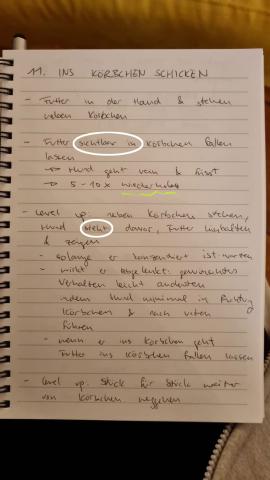 11. INS KÖRBCHEN SCHICKEN
- Futter in der Hand & stehen
neben Körbchen
- Futter sichtbar in Körbchen fallen
lassen
-> Hund geht rein & frisst
-> 5-10x wiederholen
- Level up: neben Körbchen stehen,
Hund steht davor, Futter hinhalten
& zeigen
- solange er konzentriert ist warten
- wirkt er abgelenkt gewünschtes
Verhalten leicht andeuten
indem Hund minimal in Richtung
Körbchen & nach unten
führen
- wenn er ins Körbchen geht
Futter ins Körbchen fallen lassen
- Level up: Stück für Stück weiter
von Körbchen weggehen